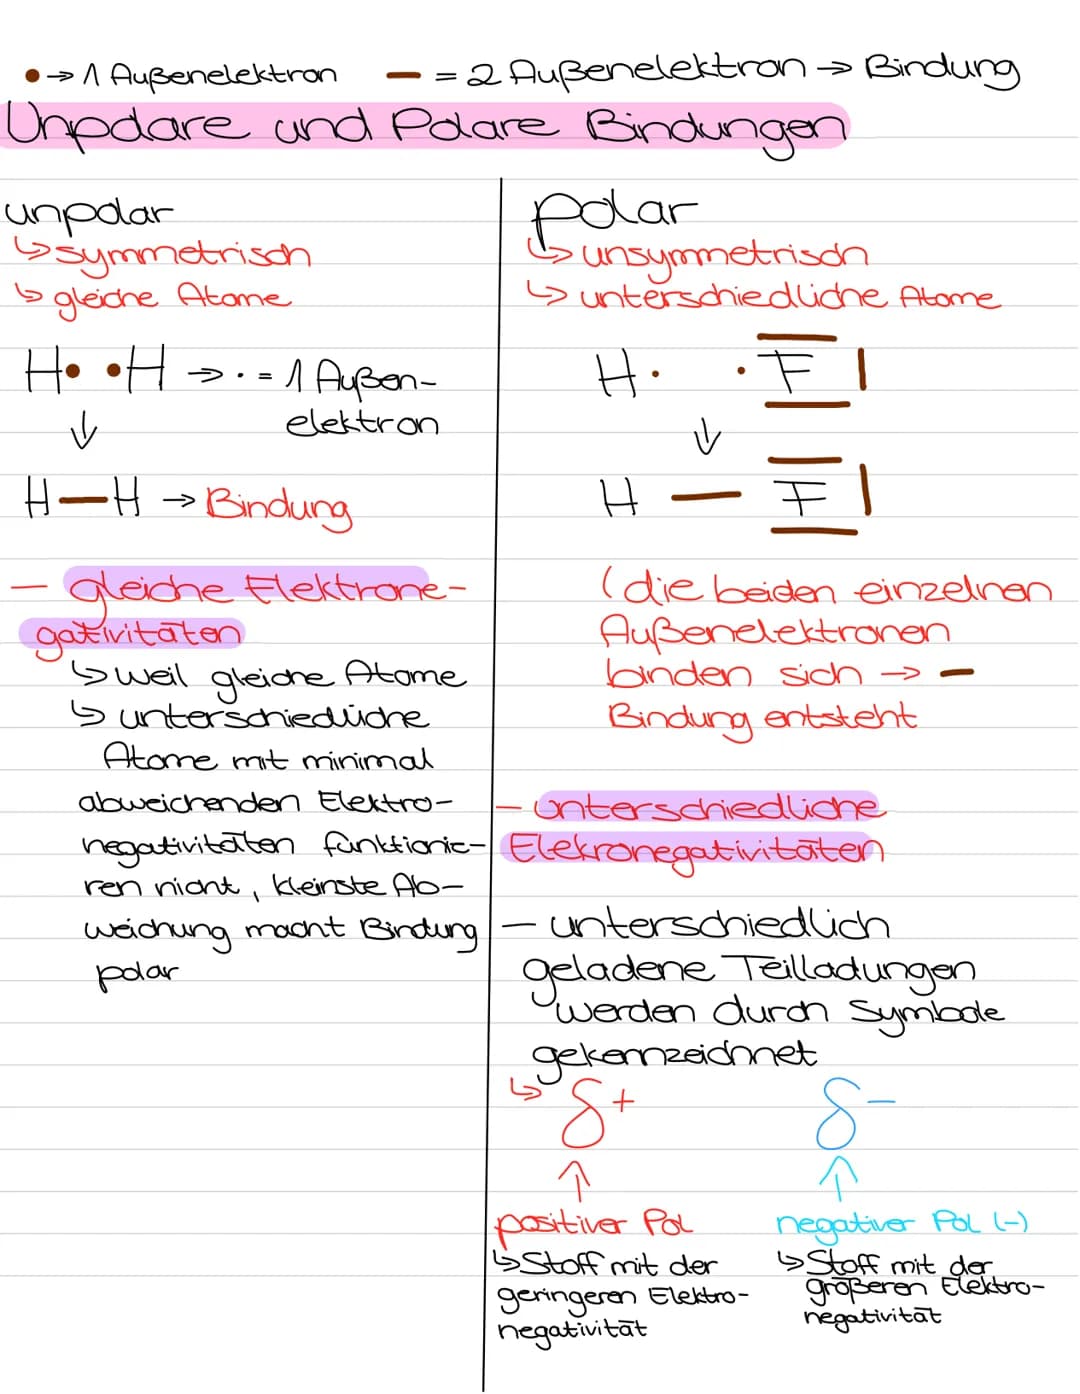 • → 1 Außenelektron — = 2 Außenelektron → Bindung
Unpolare und Polare Bindungen
unpolar
↳ symmetrisch
↳ gleiche Atome
H• •H → • = 1 Außen-
elektron
↓
H—H → Bindung
— gleiche Elektrone-
gativitäten
↳ weil gleiche Atome
↳ unterschiedliche
Atome mit minimal
abweichenden Elektro-
negativitäten funktionie-
ren nicht, kleinste Ab-
weichung macht Bindung
polar
polar
↳ unsymmetrisch
↳ unterschiedliche Atome
H• •F|
↓
H — F|
(die beiden einzelnen
Außenelektronen
binden sich → —
Bindung entsteht
— unterschiedliche
Elekronegativitäten
— unterschiedlich
geladene Teilladungen
werden durch Symbole
gekennzeichnet
↳ δ+ δ−
↑ ↑
positiver Pol negativer Pol (-)
↳ Stoff mit der
geringeren Elektro-
negativität
↳ Stoff mit der
größeren Elektro-
negativität